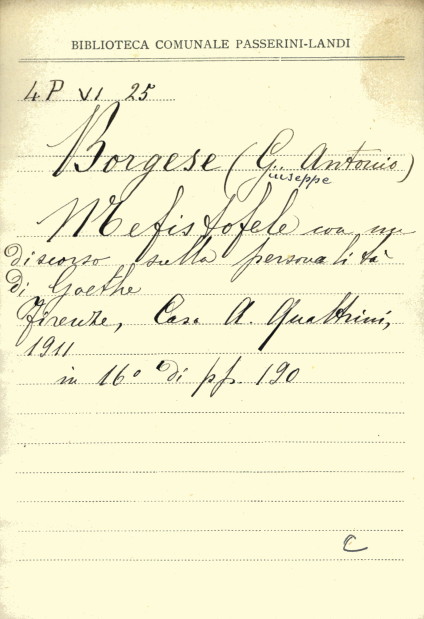 BIBLIOTECA COMUNALE PASSERINI-LANDI
4 P VI 25
Borgese (G. Antonio)
iuseppe
Mefistofele con un
discorso sulla personalità
di Goethe
Firenze, Casa A. Quattrini,
1911
in 16° di pp. 190
C